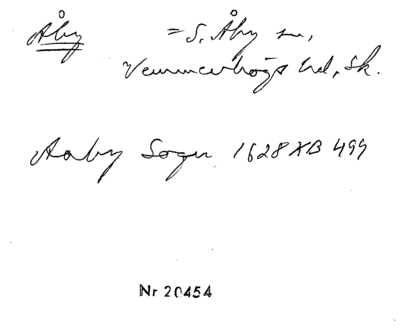 Åby = S. Åby sn,
Vemmenhögs hd, Sk.
Aaby Sogn 1628 XB 499
Nr 20454